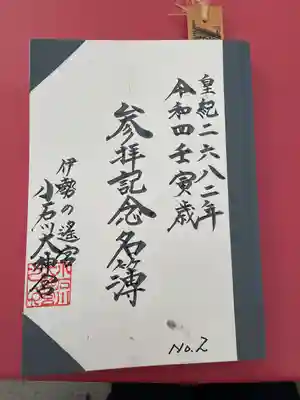 皇紀二六八二年
令和四壬寅歳
参拝記念名簿
伊勢の遙宮
小石川大神宮
No.2